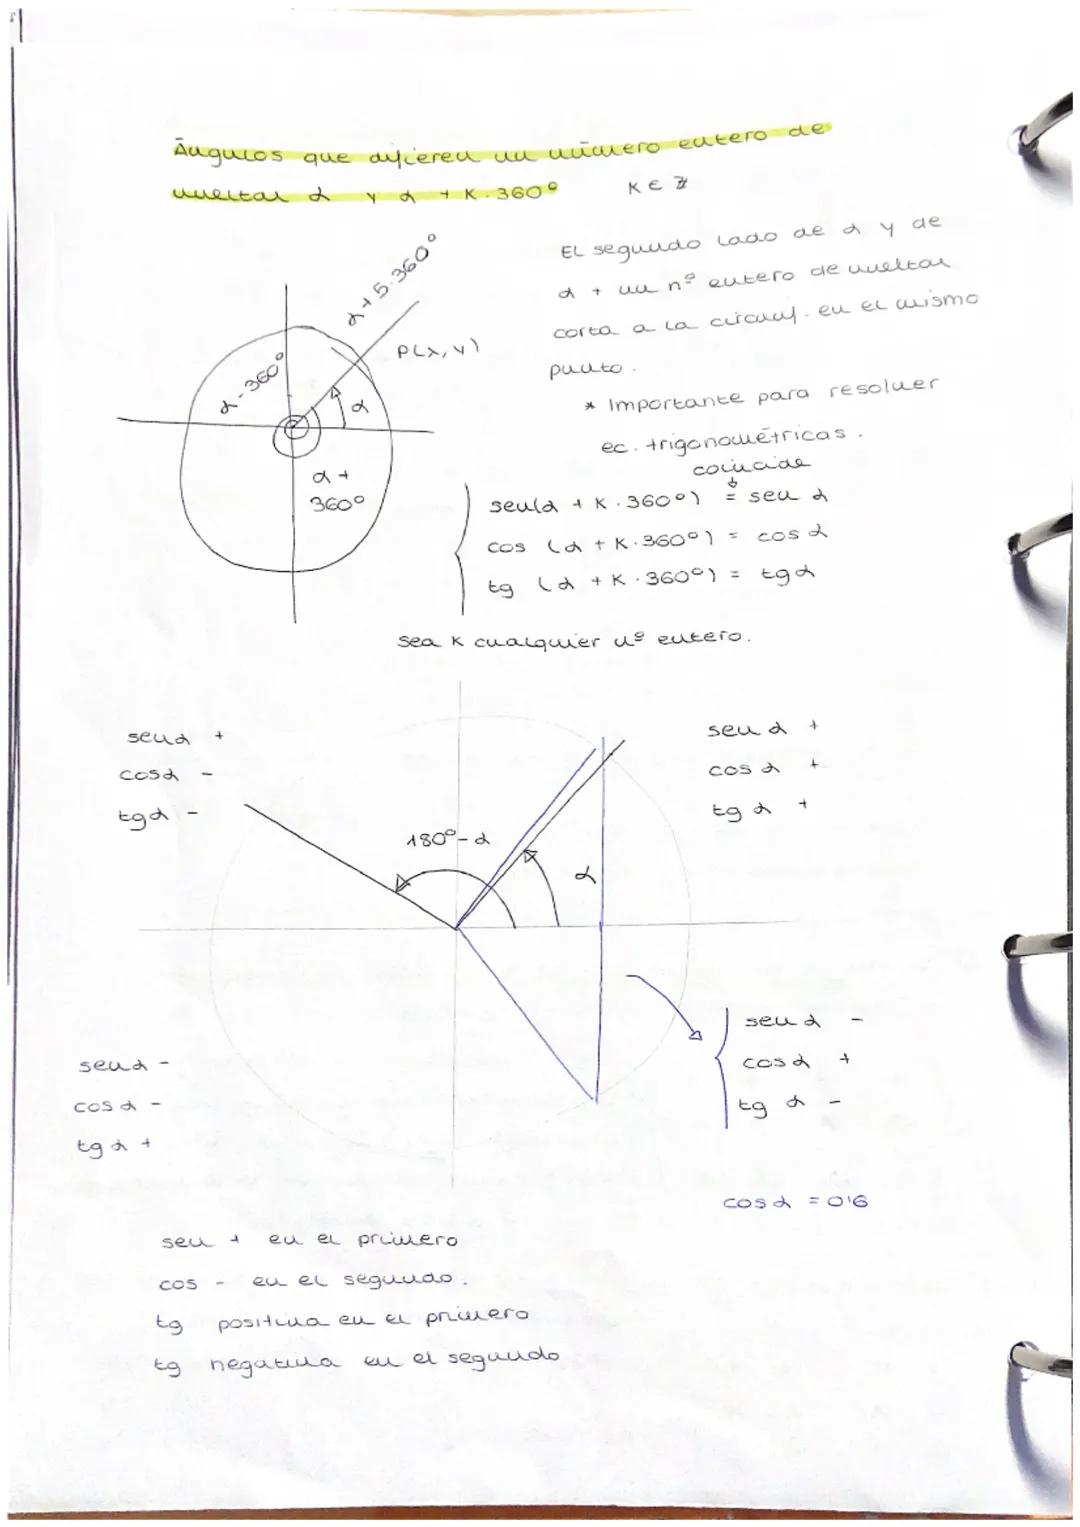 Ángulos que difieren un número entero de
vueltas α y α + K·360º K ∈ ℤ
El segundo lado de α y de
α + un nº entero de vueltas
corta a la circunf. en el mismo
punto.
* Importante para resolver
ec. trigonométricas.
α + 5·360º
P(x, y)
α - 360º
α
α +
360º
coincide
sen(α + K·360º) = sen α
cos (α + K·360º) = cos α
tg (α + K·360º) = tg α
Sea K cualquier nº entero.
sen α +
cos α -
tg α -
sen α +
cos α +
tg α +
180º - α
α
sen α -
cos α +
tg α -
sen α -
cos α -
tg α +
cos α = 0'6
sen + en el primero
cos - en el segundo.
tg positiva en el primero
tg negativa en el segundo